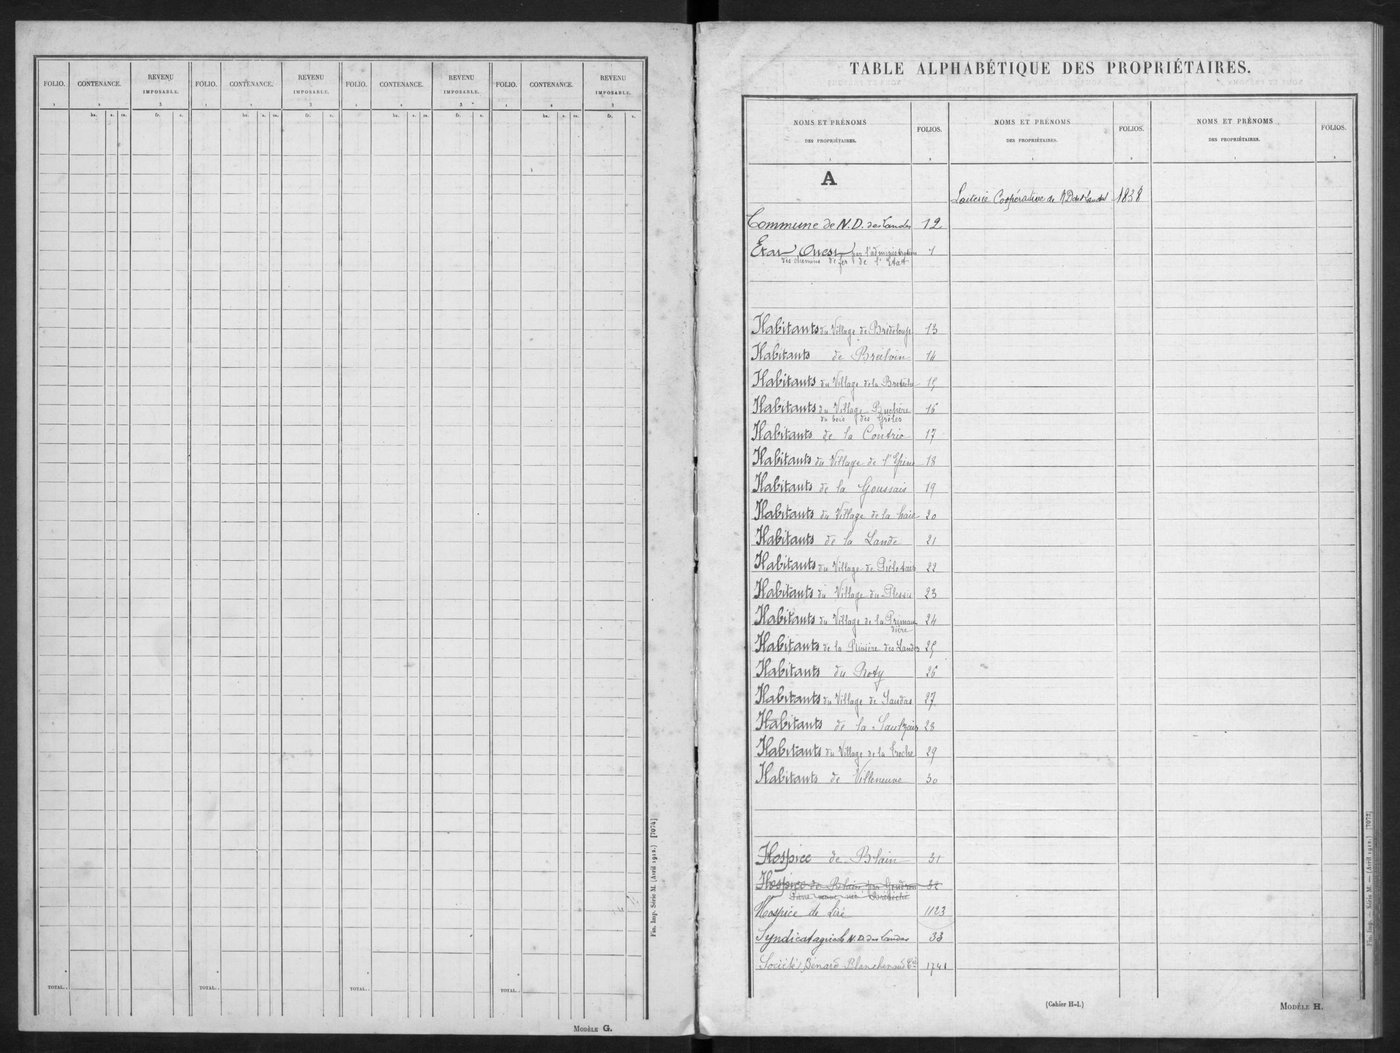 FOLIO. CONTENANCE. REVENU IMPOSABLE. FOLIO. CONTENANCE. REVENU IMPOSABLE. FOLIO. CONTENANCE. REVENU IMPOSABLE. FOLIO. CONTENANCE. REVENU IMPOSABLE.
1 2 3 1 2 3 1 2 3 1 2 3
ha. a. ca. fr. c. ha. a. ca. fr. c. ha. a. ca. fr. c. ha. a. ca. fr. c.
TOTAL.. TOTAL.. TOTAL.. TOTAL..
Fin. Imp. Série M. (Avril 1912.) [7074]
MODÈLE G.
TABLE ALPHABÉTIQUE DES PROPRIÉTAIRES.
NOMS ET PRÉNOMS DES PROPRIÉTAIRES. FOLIOS. NOMS ET PRÉNOMS DES PROPRIÉTAIRES. FOLIOS. NOMS ET PRÉNOMS DES PROPRIÉTAIRES. FOLIOS.
1 2 1 2 1 2
A
Laiterie Coopérative de N.D. des Landes 1838
Commune de N.D. des Landes 12
Etat Ouest par l'administration 1
des chemins de fer de l'Etat
Habitants du Village de 13
Habitants de 14
Habitants du Village de la 15
Habitants du Village 16
du bois des Groles
Habitants de la 17
Habitants du Village de 18
Habitants de la Goussais 19
Habitants du Village de la haie 20
Habitants de la Lande 21
Habitants du Village de 22
Habitants du Village du Plessis 23
Habitants du Village de la 24
Habitants de la des Landes 25
Habitants du 26
Habitants du Village de 27
Habitants de la 28
Habitants du Village de la 29
Habitants de Villeneuve 30
Hospice de Blain 31
Hospice de Blain par 32
Hospice de 1123
Syndicat agricole N.D. des Landes 33
Société Bénard 1741
(Cahier H-I.)
MODÈLE H.
Fin. Imp. — Série M. — (Avril 1912.) [7073]